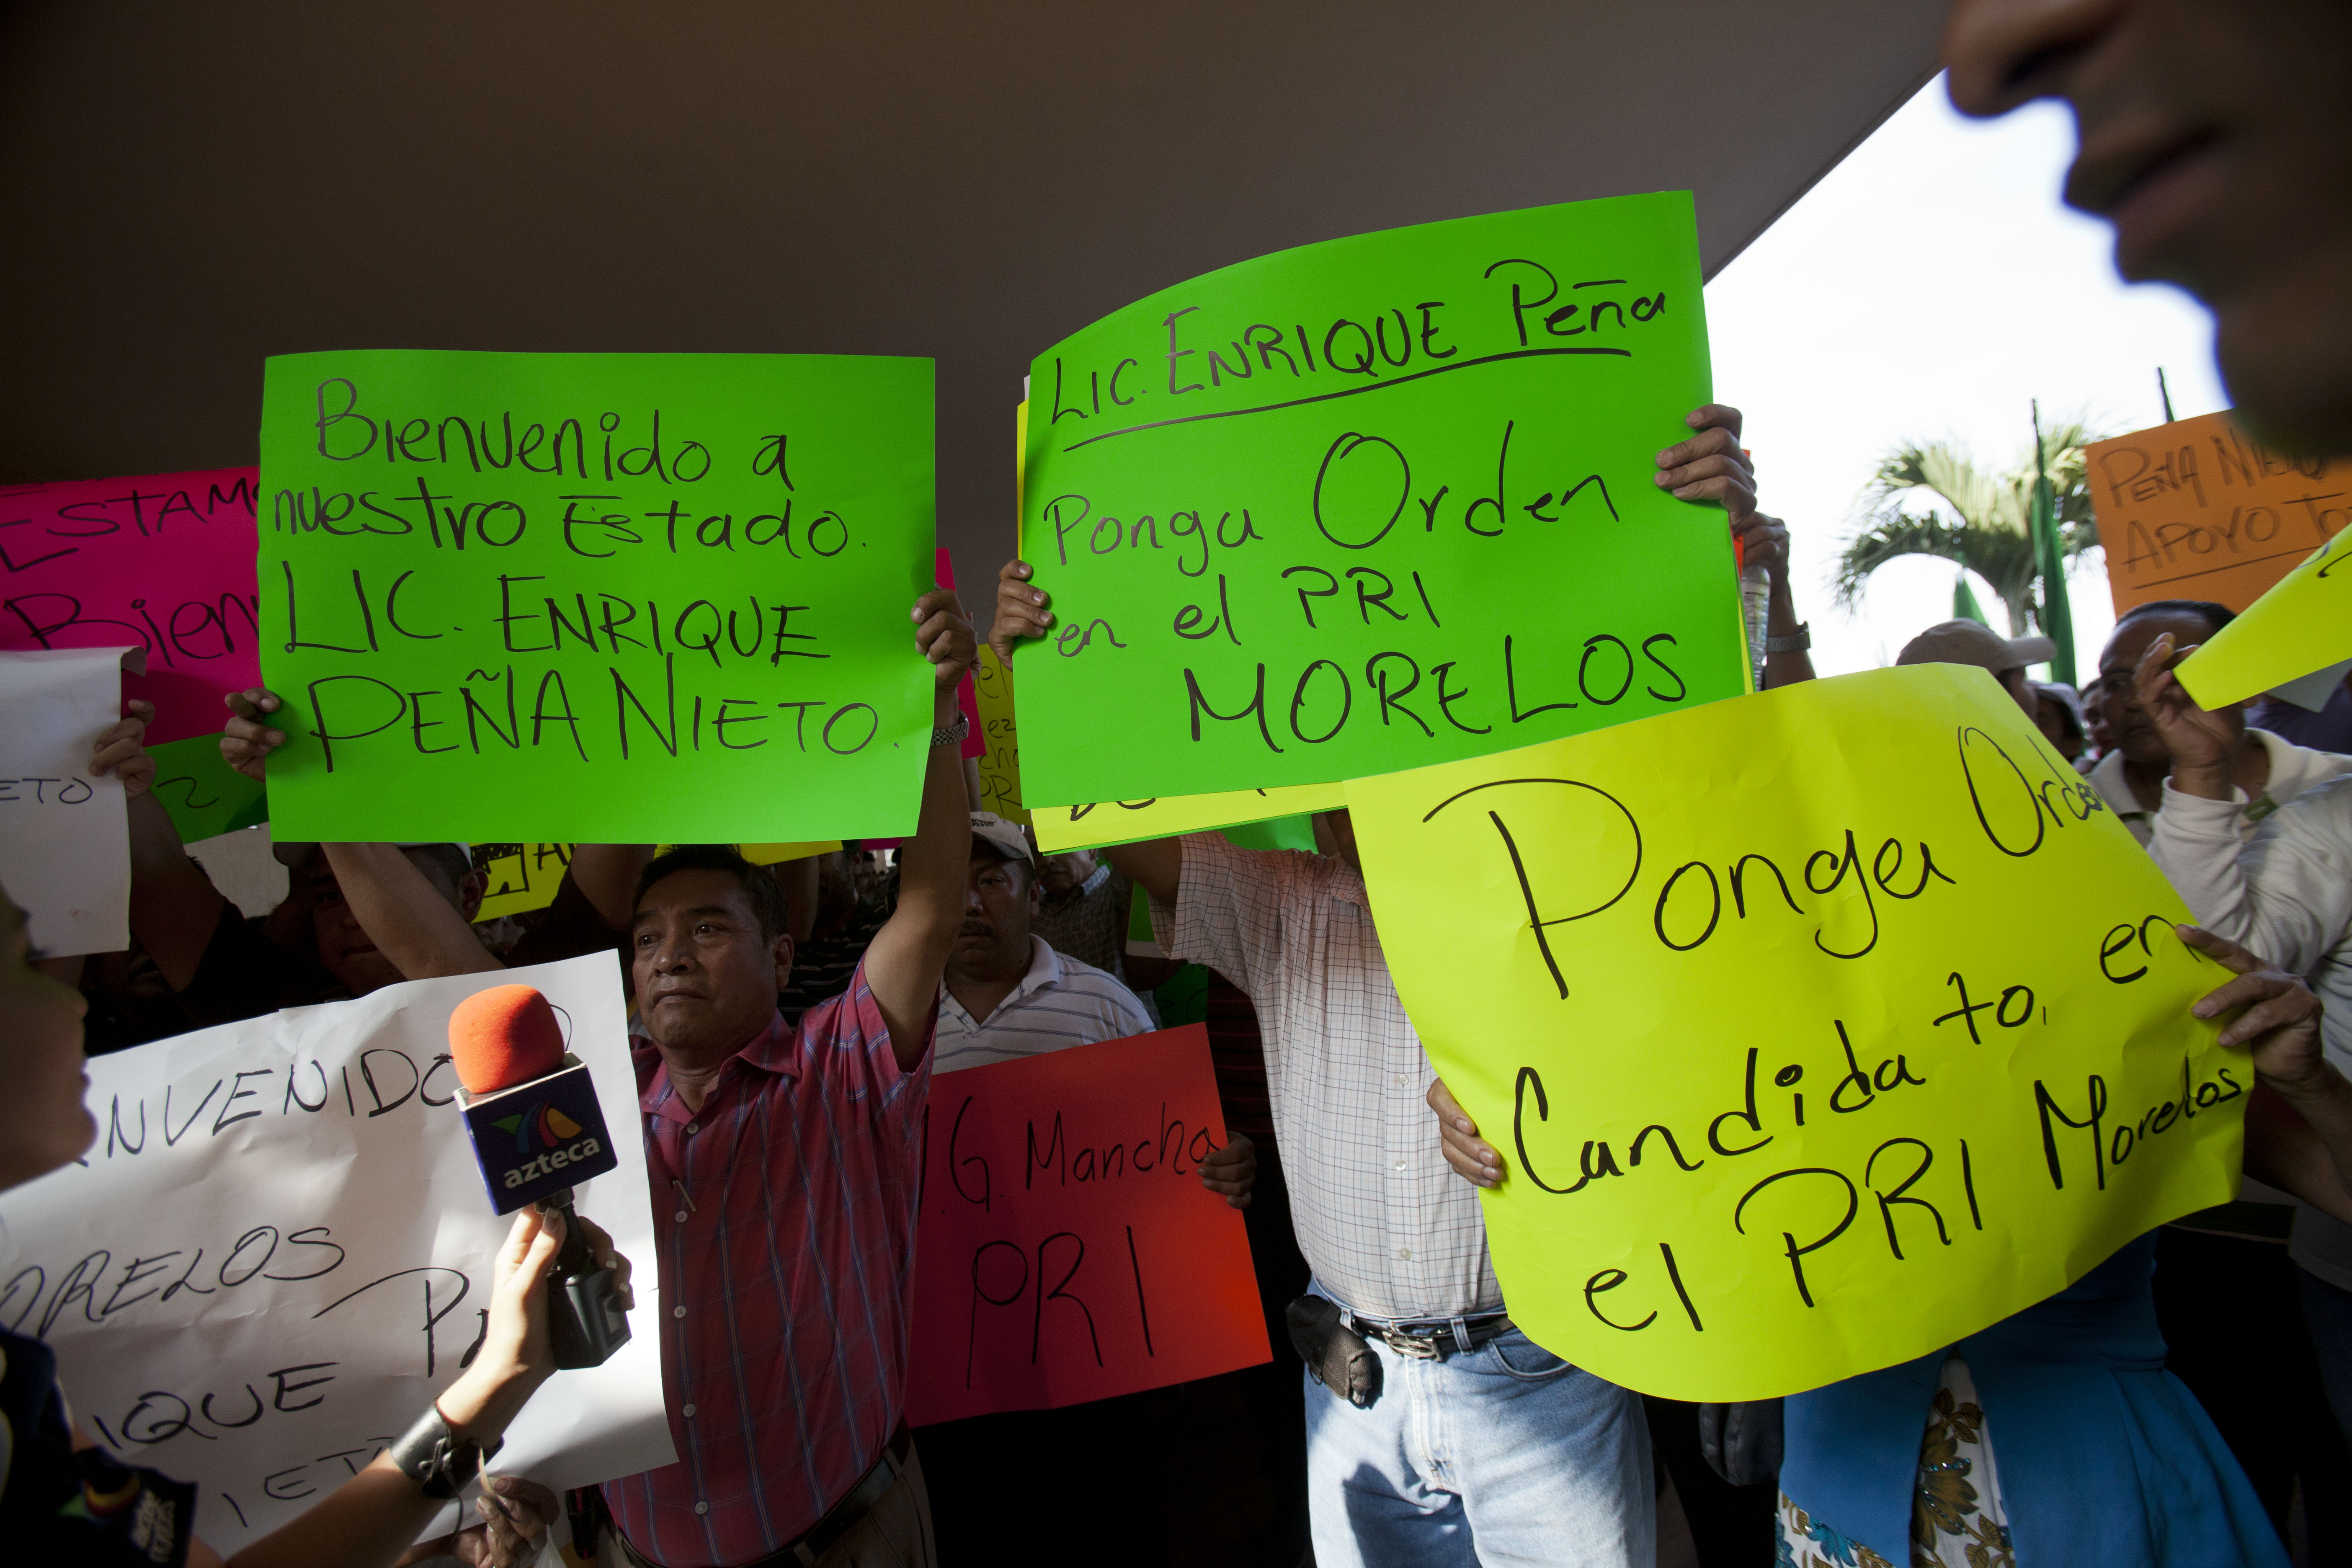 ESTAM
Bien
ETO
Bienvenido a
nuestro Estado.
LIC. ENRIQUE
PEÑA NIETO.
LIC. ENRIQUE Peña
Ponga Orden
en el PRI
MORELOS
PEÑA NIETO
APOYO
Ponga Orden
Candidato, en
el PRI Morelos
NVENIDO
ORELOS
IQUE
IETO
azteca
G. Mancha
PRI